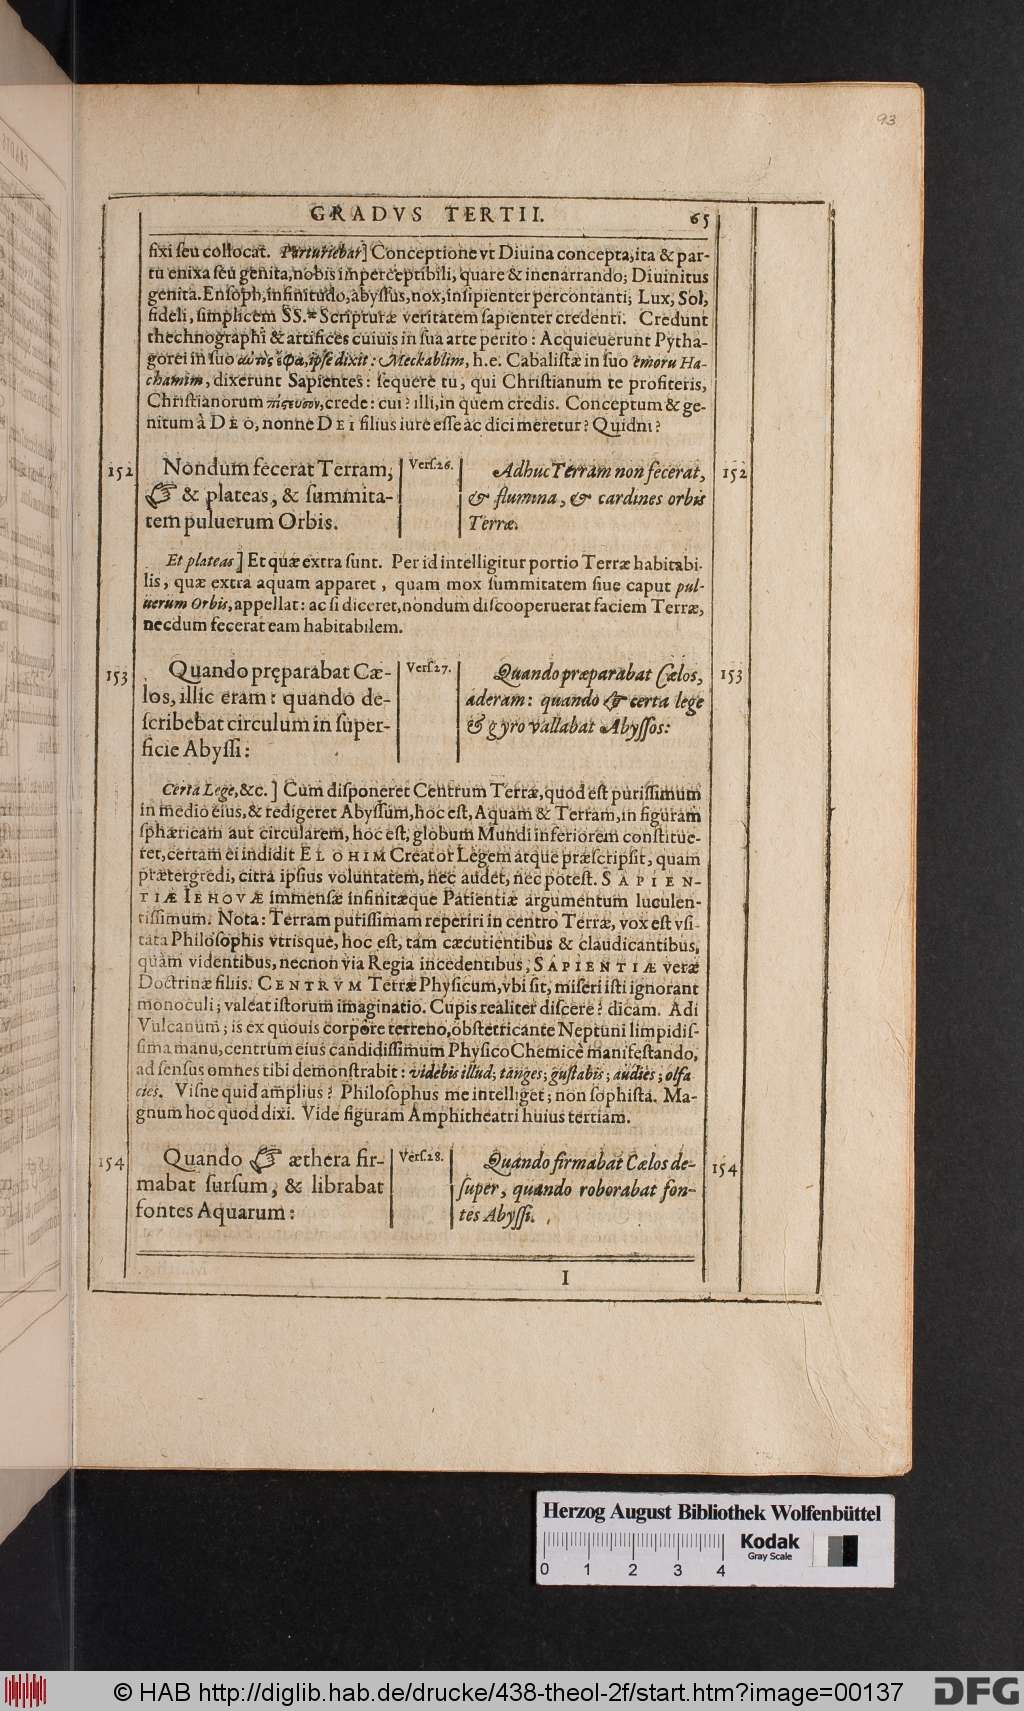 93
GRADVS TERTII. 65
fixi ſeu collocat. Parturiebar] Conceptione vt Diuina concepta, ita & par-
tu enixa ſeu genita, nobis imperceptibili, quare & inenarrando; Diuinitus
genita. Enſoph, infinitudo, abyſſus, nox, inſipienter percontanti; Lux, Sol,
fideli, ſimplicem SS.æ Scripturæ veritatem ſapienter credenti. Credunt
thechnographi & artifices cuiuis in ſua arte perito: Acquieuerunt Pytha-
gorei in ſuo αὐτὸς ἔφα, ipſe dixit: Meckablim, h.e. Cabaliſtæ in ſuo emoru Ha-
chamim, dixerunt Sapientes: ſequere tu, qui Chriſtianum te profiteris,
Chriſtianorum πίςευσον, crede: cui? illi, in quem credis. Conceptum & ge-
nitum à DEO, nonne DEI filius iure eſſe ac dici meretur? Quidni?
152 Nondum fecerat Terram, Verſ.26. Adhuc Terram non fecerat, 152
☞ & plateas, & ſummita- & flumina, & cardines orbis
tem puluerum Orbis. Terræ.
Et plateas] Et quæ extra ſunt. Per id intelligitur portio Terræ habitabi-
lis, quæ extra aquam apparet, quam mox ſummitatem ſiue caput pul-
uerum Orbis, appellat: ac ſi diceret, nondum diſcooperuerat faciem Terræ,
necdum fecerat eam habitabilem.
153 Quando pręparabat Cæ- Verſ.27. Quando præparabat Cælos, 153
los, illic eram: quando de- aderam: quando ☞ certa lege
ſcribebat circulum in ſuper- & gyro vallabat Abyſſos:
ficie Abyſſi:
Certa Lege, &c.] Cum diſponeret Centrum Terræ, quod eſt puriſſimum
in medio eius, & redigeret Abyſſum, hoc eſt, Aquam & Terram, in figuram
ſphæricam aut circularem, hoc eſt, globum Mundi inferiorem conſtitue-
ret, certam ei indidit ELOHIM Creator Legem atque præſcripſit, quam
prætergredi, citra ipſius voluntatem, nec audet, nec poteſt. SAPIEN-
TIÆ IEHOVÆ immenſæ infinitæque Patientiæ argumentum luculen-
tiſſimum. Nota: Terram puriſſimam reperiri in centro Terræ, vox eſt vſi-
tata Philoſophis vtrisque, hoc eſt, tam cæcutientibus & claudicantibus,
quàm videntibus, necnon via Regia incedentibus, SAPIENTIÆ veræ
Doctrinæ filiis. CENTRVM Terræ Phyſicum, vbi ſit, miſeri iſti ignorant
monoculi; valeat iſtorum imaginatio. Cupis realiter diſcere? dicam. Adi
Vulcanum; is ex quouis corpore terreno, obſtetricante Neptuni limpidiſ-
ſima manu, centrum eius candidiſſimum Phyſico Chemicè manifeſtando,
ad ſenſus omnes tibi demonſtrabit: videbis illud; tanges; guſtabis; audies; olfa
cies. Viſne quid amplius? Philoſophus me intelliget; non ſophiſta. Ma-
gnum hoc quod dixi. Vide figuram Amphitheatri huius tertiam.
154 Quando ☞ æthera fir- Verſ.28. Quando firmabat Cælos de- 154
mabat ſurſum, & librabat ſuper, quando roborabat fon-
fontes Aquarum: tes Abyſſi.
I
Herzog August Bibliothek Wolfenbüttel
Kodak
Gray Scale
0 1 2 3 4
© HAB http://diglib.hab.de/drucke/438-theol-2f/start.htm?image=00137
DFG